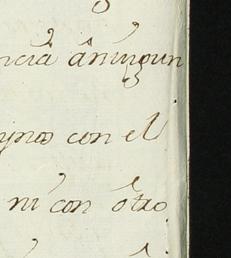 ncia àningun
ynos con el
ni con otro